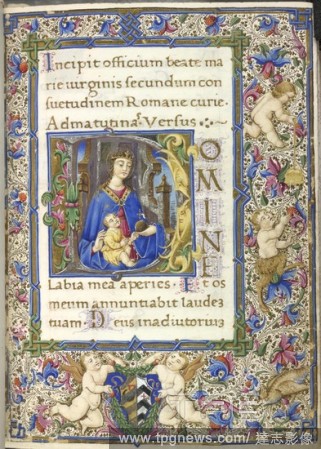 Incipit officium beate ma
rie uirginis secundum con
suetudinem Romane curie.
Ad matutinaʒ Versus
D
OMINE
Labia mea aperies. Et os
meum annuntiabit laudeʒ
tuam Deus in adiutoriuʒ
www.tpgnews.com/ 達志影像